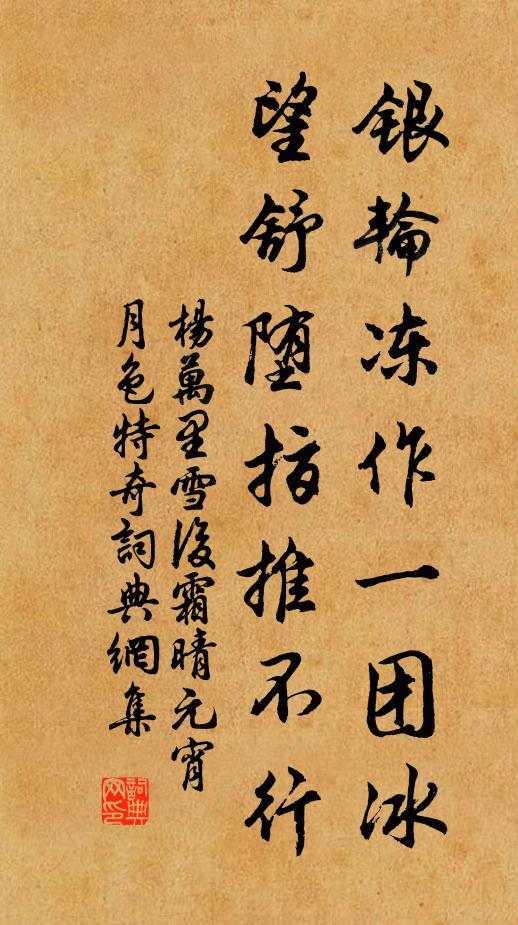 银轮冻作一团冰
望舒堕指推不行
楊萬里雪後霜晴元宵
月色特奇詞典網集
詞典网印